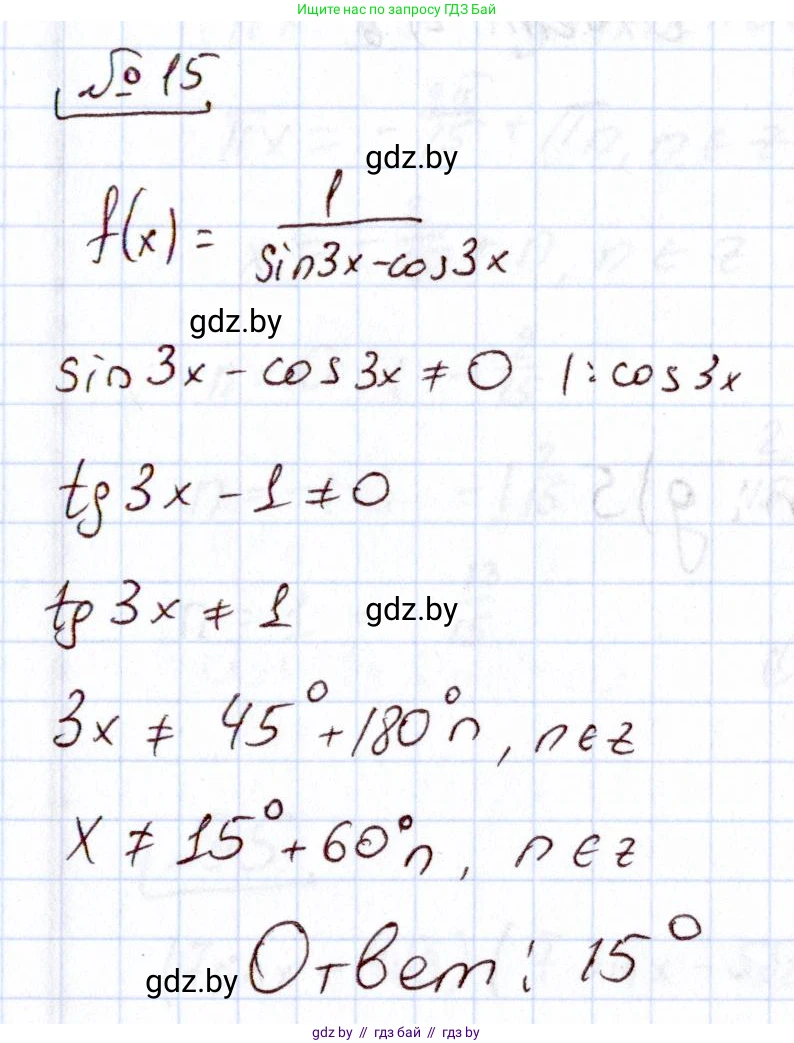 Ищите нас по запросу ГДЗ Бай
№ 15
gdz.by
f(x) = 1/(sin3x-cos3x)
gdz.by
sin3x - cos3x ≠ 0 |: cos3x
tg3x - 1 ≠ 0
tg3x ≠ 1 gdz.by
3x ≠ 45° + 180°n, n∈z
x ≠ 15° + 60°n, n∈z
gdz.by Ответ: 15°
gdz.by // гдз бай // gdz.by